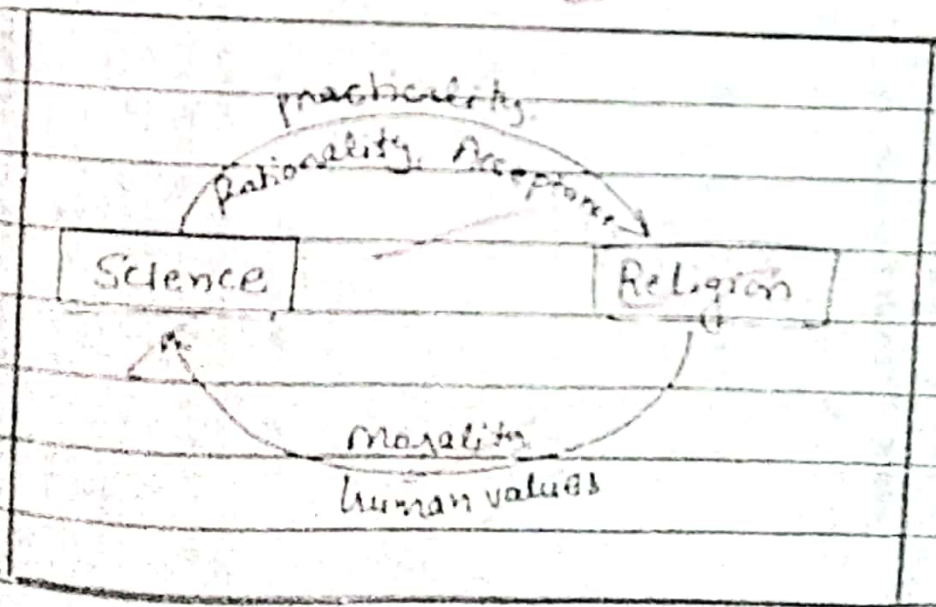 practicality.
Rationality, Acceptance
Science
Religion
Morality
human values